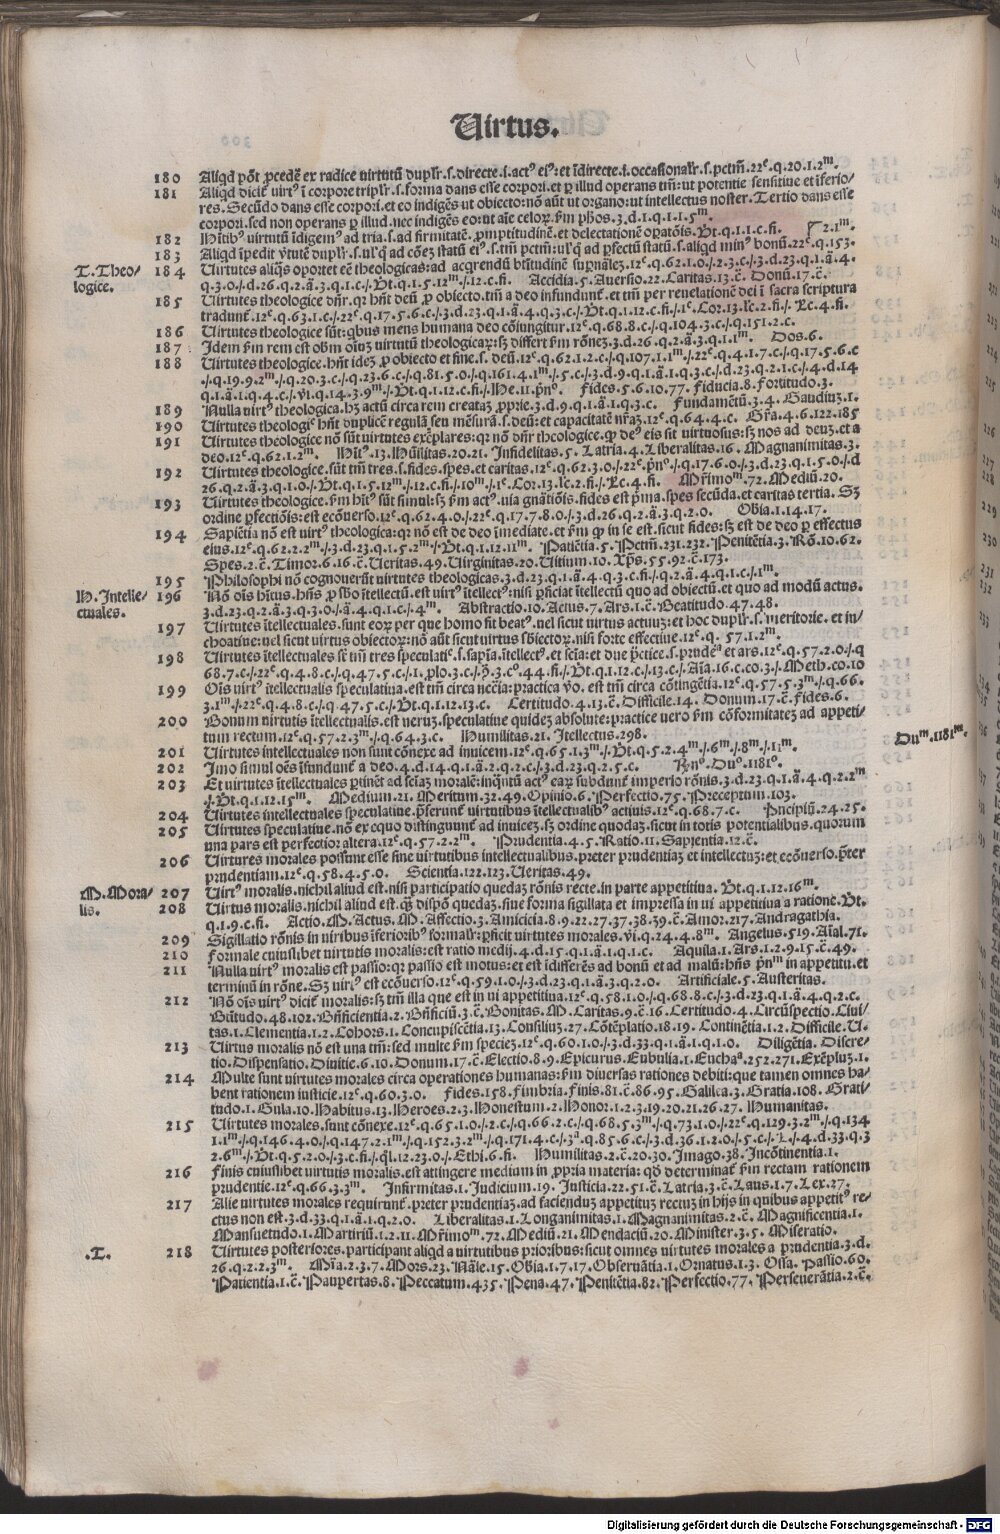 Uirtus.
180 Aliqd põt ꝓcedẽ ex radice virtutũ duplr̃.s.directe.i.act⁹ ei⁹:et ĩdirecte.i.occasionalr̃.s.pctm̃.22ᵉ.q.20.1.2ᵐ.
181 Aliqd dicit᷑ virt⁹ ĩ corpore triplr̃.s.forma dans esse corpori.et ꝑ illud operans tm̃:ut potentie sensitiue et ĩferio/
res. Secũdo dans esse corpori.et eo indigẽs ut obiecto:nõ aũt ut organo:ut intellectus noster. Tertio dans esse
corpori.sed non operans ꝑ illud.nec indigẽs eo:ut aĩe celoꝝ.ẜm pħos.3.d.1.q.1.1.5ᵐ.
182 Hĩtib⁹ virtutũ ĩdigem⁹ ad tria.s.ad firmitatẽ.ꝓmptitudinẽ.et delectationẽ oꝑatõis. Ut.q.1.1.c.fi. 2.1ᵐ.
183 Aliqd ĩpedit v̾tutẽ duplr̃.s.ul'q̃ ad cõẽʒ statũ ei⁹.s.tm̃ pctm̃:ul'q̃ ad ꝑfectũ statũ.s.aliqd min⁹ bonũ.22ᵉ.q.153.
T. Theo/ 184 Uirtutes aliq̃s oportet eẽ theologicas:ad acqrendũ btĩtudinẽ supnãleʒ.12ᵉ.q.62.1.0./.2.3.c./.3.d.23.q.1.ã.4.
logice. q.3.0./.d.26.q.2.ã.3.q.1.c./.Ut.q.1.5.12ᵐ./.12.c.fi. Accidia.5. Auersio.22. Caritas.13.c̃. Donũ.17.c̃.
185 Uirtutes theologice dñr̃.qꝛ hñt deũ ꝓ obiecto.tm̃ a deo infundunt᷑.et tm̃ per reuelationẽ dei ĩ sacra scriptura
tradunt᷑.12ᵉ.q.63.1.c./.22ᵉ.q.17.5.6.c./.3.d.23.q.1.ã.4.q.3.c./.Ut.q.1.12.c.fi./.1ᵉ.Cor.13.lc̃.2.fi./. Lc.4.fi.
186 Uirtutes theologice sũt:qbus mens humana deo cõiungitur.12ᵉ.q.68.8.c./.q.104.3.c./.q.151.2.c.
187 Idem ẜm rem est obm̃ oĩuʒ virtutũ theologicaꝝ:sʒ differt ẜm rõneʒ.3.d.26.q.2.ã.3.q.1.1ᵐ. Dos.6.
188 Uirtutes theologice.hñt ideʒ ꝓ obiecto et fine.s. deũ.12ᵉ.q.62.1.2.c./.q.107.1.1ᵐ./.22ᵉ.q.4.1.7.c./.q.17.5.6.c
./.q.19.9.2ᵐ./.q.20.3.c./.q.23.6.c./.q.81.5.0./.q.161.4.1ᵐ./.5.c./.3.d.9.q.1.ã.1.q.3.c./.d.23.q.2.1.c./.4.d.14
q.1.ã.1.q.4.c./.vi.q.14.3.9ᵐ./.Ut.q.1.12.c.fi./.He.11.pñº. Fides.5.6.10.77. Fiducia.8. Fortitudo.3.
189 Nulla virt⁹ theologica.hʒ actũ circa rem creataʒ ꝓprie.3.d.9.q.1.ã.1.q.3.c. Fundamẽtũ.3.4. Gaudiuʒ.1.
190 Uirtutes theologiᶜ hñt duplicẽ regulã seu mẽsurã.s.deũ:et capacitatẽ nr̃aʒ.12ᵉ.q.64.4.c. Gr̃a.4.6.122.185
191 Uirtutes theologice nõ sũt virtutes exẽplares:qꝛ nõ dñr̃ theologice.ꝙ de⁹ eis sit virtuosus:sʒ nos ad deuʒ.et a
deo.12ᵉ.q.62.1.2ᵐ. Hĩt⁹.13. Hũilitas.20.21. Infidelitas.5. Latria.4. Liberalitas.16. Magnanimitas.3.
192 Uirtutes theologice.sũt tm̃ tres.s.fides.spes.et caritas.12ᵉ.q.62.3.0./.22ᵉ.pñº./.q.17.6.0./.3.d.23.q.1.5.0./.d
26.q.2.ã.3.q.1.0./.Ut.q.1.5.12ᵐ./.12.c.fi./.10ᵐ./.1ᵉ.Cor.13.lc̃.2.fi./.Lc.4.fi. Mr̃imoᵐ.72. Mediũ.20.
193 Uirtutes theologice.ẜm hĩt⁹ sũt simul:sʒ ẜm act⁹.uia gnãtiõis.fides est pma.spes secũda.et caritas tertia. Sʒ
ordine ꝑfectiõis:est ecõuerso.12ᵉ.q.62.4.0./.22ᵉ.q.17.7.8.0./.3.d.26.q.2.ã.3.q.2.0. Obĩa.1.14.17.
194 Sapiẽtia nõ est virt⁹ theologica:qꝛ nõ est de deo ĩmediate.et ẜm ꝙ in se est.sicut fides:sʒ est de deo ꝑ effectus
eius.12ᵉ.q.62.2.2ᵐ./.3.d.23.q.1.5.2ᵐ./.Ut.q.1.12.11ᵐ. Patiẽtia.5. Pctm̃.231.232. Penitẽtia.3. Rõ.10.62.
Spes.2.c̃. Timor.6.16.c̃. Ueritas.49. Uirginitas.20. Uitium.10. Xp̃s.55.92.c̃.173.
195 Philosophi nõ cognouerũt virtutes theologicas.3.d.23.q.1.ã.4.q.3.c.fi./.q.2.ã.4.q.1.c./.1ᵐ.
H. Intelle/ 196 Nõ oĩs hĩtus.hñs ꝓ sbõ ĩtellectũ.est virt⁹ ĩtellect⁹:nisi ꝑficiat ĩtellectũ quo ad obiectũ.et quo ad modũ actus.
ctuales. 3.d.23.q.2.ã.3.q.3.0./.ã.4.q.1.c./.4ᵐ. Abstractio.10. Actus.7. Ars.1.c̃. Beatitudo.47.48.
197 Uirtutes ĩtellectuales.sunt eoꝝ per que homo fit beat⁹.uel sicut virtus actuuʒ:et hoc duplr̃.s.meritorie. et in/
choatiue:uel sicut uirtus obiectoꝝ:nõ aũt sicut uirtus sb̾iectoꝝ.nisi forte effectiue.12ᵉ.q. 57.1.2ᵐ.
198 Uirtutes ĩtellectuales sẽ tm̃ tres speculatiᵉ.s.sapĩa.ĩtellect⁹.et scĩa:et due pctice.s.prudẽᵃ et ars.12ᵉ.q.57.2.0./.q
68.7.c./.22ᵉ.q.4.8.c./.q.47.5.c./.1.plo.3.c./.p̾.3.cº.44.fi./.Ut.q.1.12.c./.13.c./.Aĩa.16.c.co.3./.Meth.co.10
199 Oĩs uirt⁹ ĩtellectualis speculatiua.est tm̃ circa nec̃ia:practica v̾o. est tm̃ circa cõtingẽtia.12ᵉ.q.57.5.3ᵐ./.q.66.
3.1ᵐ./.22ᵉ.q.4.8.c./.q.47.5.c./.Ut.q.1.12.13.c. Certitudo.4.13.c̃. Difficile.14. Donum.17.c̃. Fides.6.
200 Bonum uirtutis ĩtellectualis.est ueruʒ.speculatiue quideʒ absolute:practice uero ẜm cõformitateʒ ad appeti/
tum rectum.12ᵉ.q.57.2.3ᵐ./.q.64.3.c. Humilitas.21. Itellectus.298.
201 Uirtutes intellectuales non sunt cõnexe ad inuicem.12ᵉ.q.65.1.3ᵐ./.Ut.q.5.2.4ᵐ./.6ᵐ./.8ᵐ./.11ᵐ. Duᵐ.1181ᵐ.
202 Imo simul oẽs ĩfundunt᷑ a deo.4.d.14.q.1.ã.2.q.2.c./.3.d.23.q.2.5.c. Rñº. Duº.1181º.
203 Et uirtutes ĩtellectuales ꝑtinẽt ad scĩaʒ morale:inq̃ntũ act⁹ eaꝝ subdunt᷑ imperio rõnis.3.d.23.q.1.ã.4.q.2.2ᵐ
./.Ut.q.1.12.15ᵐ. Medium.21. Meritum.32.49. Opinio.6. Perfectio.75. Preceptum.103.
204 Uirtutes intellectuales speculatiue.p̃ferunt᷑ uirtutibus ĩtellectualib⁹ actiuis.12ᵉ.q.68.7.c. Pncipiũ.24.25.
205 Uirtutes speculatiue.nõ ex equo distinguunt᷑ ad inuiceʒ.sʒ ordine quodaʒ.sicut in totis potentialibus.quorum
una pars est perfectior altera.12ᵉ.q.57.2.2ᵐ. Prudentia.4.5. Ratio.11. Sapientia.12.c̃.
206 Uirtutes morales possunt esse sine uirtutibus intellectualibus.preter prudentiaʒ et intellectuʒ:et ecõuerso.p̃ter
prudentiam.12ᵉ.q.58.4.5.0. Scientia.122.123. Ueritas.49.
M. Mora/ 207 Uirt⁹ moralis.nichil aliud est.nisi participatio quedaʒ rõnis recte.in parte appetitiua. Ut.q.1.12.16ᵐ.
lis. 208 Uirtus moralis.nichil aliud est.q̃ʒ dispõ quedaʒ.siue forma sigillata et impressa in ui appetitiua a ratione.Ut.
q.1.9.c.fi. Actio.M. Actus.M. Affectio.3. Amicicia.8.9.22.27.37.38.39.c̃. Amor.217. Andragathia.
209 Sigillatio rõnis in uiribus ĩferiorib⁹ formalr̃:ꝑficit uirtutes morales.vi.q.24.4.8ᵐ. Angelus.519. Aĩal.71.
210 Formale cuiuslibet uirtutis moralis:est ratio medij.4.d.15.q.1.ã.1.q.1.c. Aquila.1. Ars.1.2.9.15.c̃.49.
211 Nulla uirt⁹ moralis est passio:qꝛ passio est motus:et est ĩdifferẽs ad bonũ et ad malũ:hñs p̃nᵐ in appetitu.et
terminũ in rõne. Sʒ uirt⁹ est ecõuerso.12ᵉ.q.59.1.0./.3.d.23.q.1.ã.3.q.2.0. Artificiale.5. Austeritas.
212 Nõ oĩs uirt⁹ dicit᷑ moralis:sʒ tm̃ illa que est in ui appetitiua.12ᵉ.q.58.1.0./.q.68.8.c./.3.d.23.q.1.ã.4.q.2.c.
Bt̃udo.48.102. Bñficientia.2. Bñficiũ.3.c̃. Bonitas.M. Caritas.9.c̃.16. Certitudo.4. Circũspectio. Ciui/
tas.1. Clementia.1.2. Cohors.1. Concupiscẽtia.13. Consiliuʒ.27. Cõtẽplatio.18.19. Continẽtia.1.2. Difficile.U.
213 Uirtus moralis nõ est una tm̃:sed multe ẜm specieʒ.12ᵉ.q.60.1.0./.3.d.33.q.1.ã.1.q.1.0. Diligẽtia. Discre/
tio. Dispensatio. Diuitie.6.10. Donum.17.c̃. Electio.8.9. Epicurus. Eubulia.1. Euchaᵃ.252.271. Exẽpluʒ.1.
214 Multe sunt uirtutes morales circa operationes humanas:ẜm diuersas rationes debiti:que tamen omnes ha/
bent rationem iusticie.12ᵉ.q.60.3.0. Fides.158. Fimbria. Finis.81.c̃.86.95. Galilea.3. Gratia.108. Grati/
tudo.1. Gula.10. Habitus.13. Heroes.2.3. Honestum.2. Honor.1.2.3.19.20.21.26.27. Humanitas.
215 Uirtutes morales.sunt cõnexe.12ᵉ.q.65.1.0./.2.c./.q.66.2.c./.q.68.5.3ᵐ./.q.73.1.0./.22ᵉ.q.129.3.2ᵐ./.q.134
1.1ᵐ./.q.146.4.0./.q.147.2.1ᵐ./.q.152.3.2ᵐ./.q.171.4.c./.3ᵃ.q.85.6.c./.3.d.36.1.2.0./.5.c./.L./.4.d.33.q.3
2.6ᵐ./.Ut.q.5.2.0./.3.c.fi./.ql.12.23.0./.Ethi.6.fi. Humilitas.2.c̃.20.30. Imago.38. Incõtinentia.1.
216 Finis cuiuslibet uirtutis moralis.est attingere medium in ꝓpria materia:qđ determinat᷑ ẜm rectam rationem
prudentie.12ᵉ.q.66.3.3ᵐ. Infirmitas.1. Judicium.19. Justicia.22.51.c̃. Latria.3.c̃. Laus.1.7. Lex.27.
217 Alie uirtutes morales requirunt᷑.preter prudentiaʒ.ad faciendũʒ appetituʒ rectuʒ in hijs in quibus appetit⁹ re/
ctus non est.3.d.33.q.1.ã.1.q.2.0. Liberalitas.1. Longanimitas.1. Magnanimitas.2.c̃. Magnificentia.1.
Mansuetudo.1. Martiriũ.1.2.11. Mr̃imoᵐ.72. Mediũ.21. Mendaciũ.20. Minister.3.5. Miseratio.
.T. 218 Uirtutes posteriores.participant aliqd a uirtutibus prioribus:sicut omnes uirtutes morales a prudentia.3.d.
26.q.2.2.3ᵐ. Mĩa.2.3.7. Mors.23. Nãle.15. Obĩa.1.7.17. Obseruãtia.1. Ornatus.1.3. Ossa. Passio.60.
Patientia.1.c̃. Paupertas.8. Peccatum.435. Pena.47. Penitẽtia.82. Perfectio.77. Perseuerãtia.2.c̃.
Digitalisierung gefördert durch die Deutsche Forschungsgemeinschaft - DFG